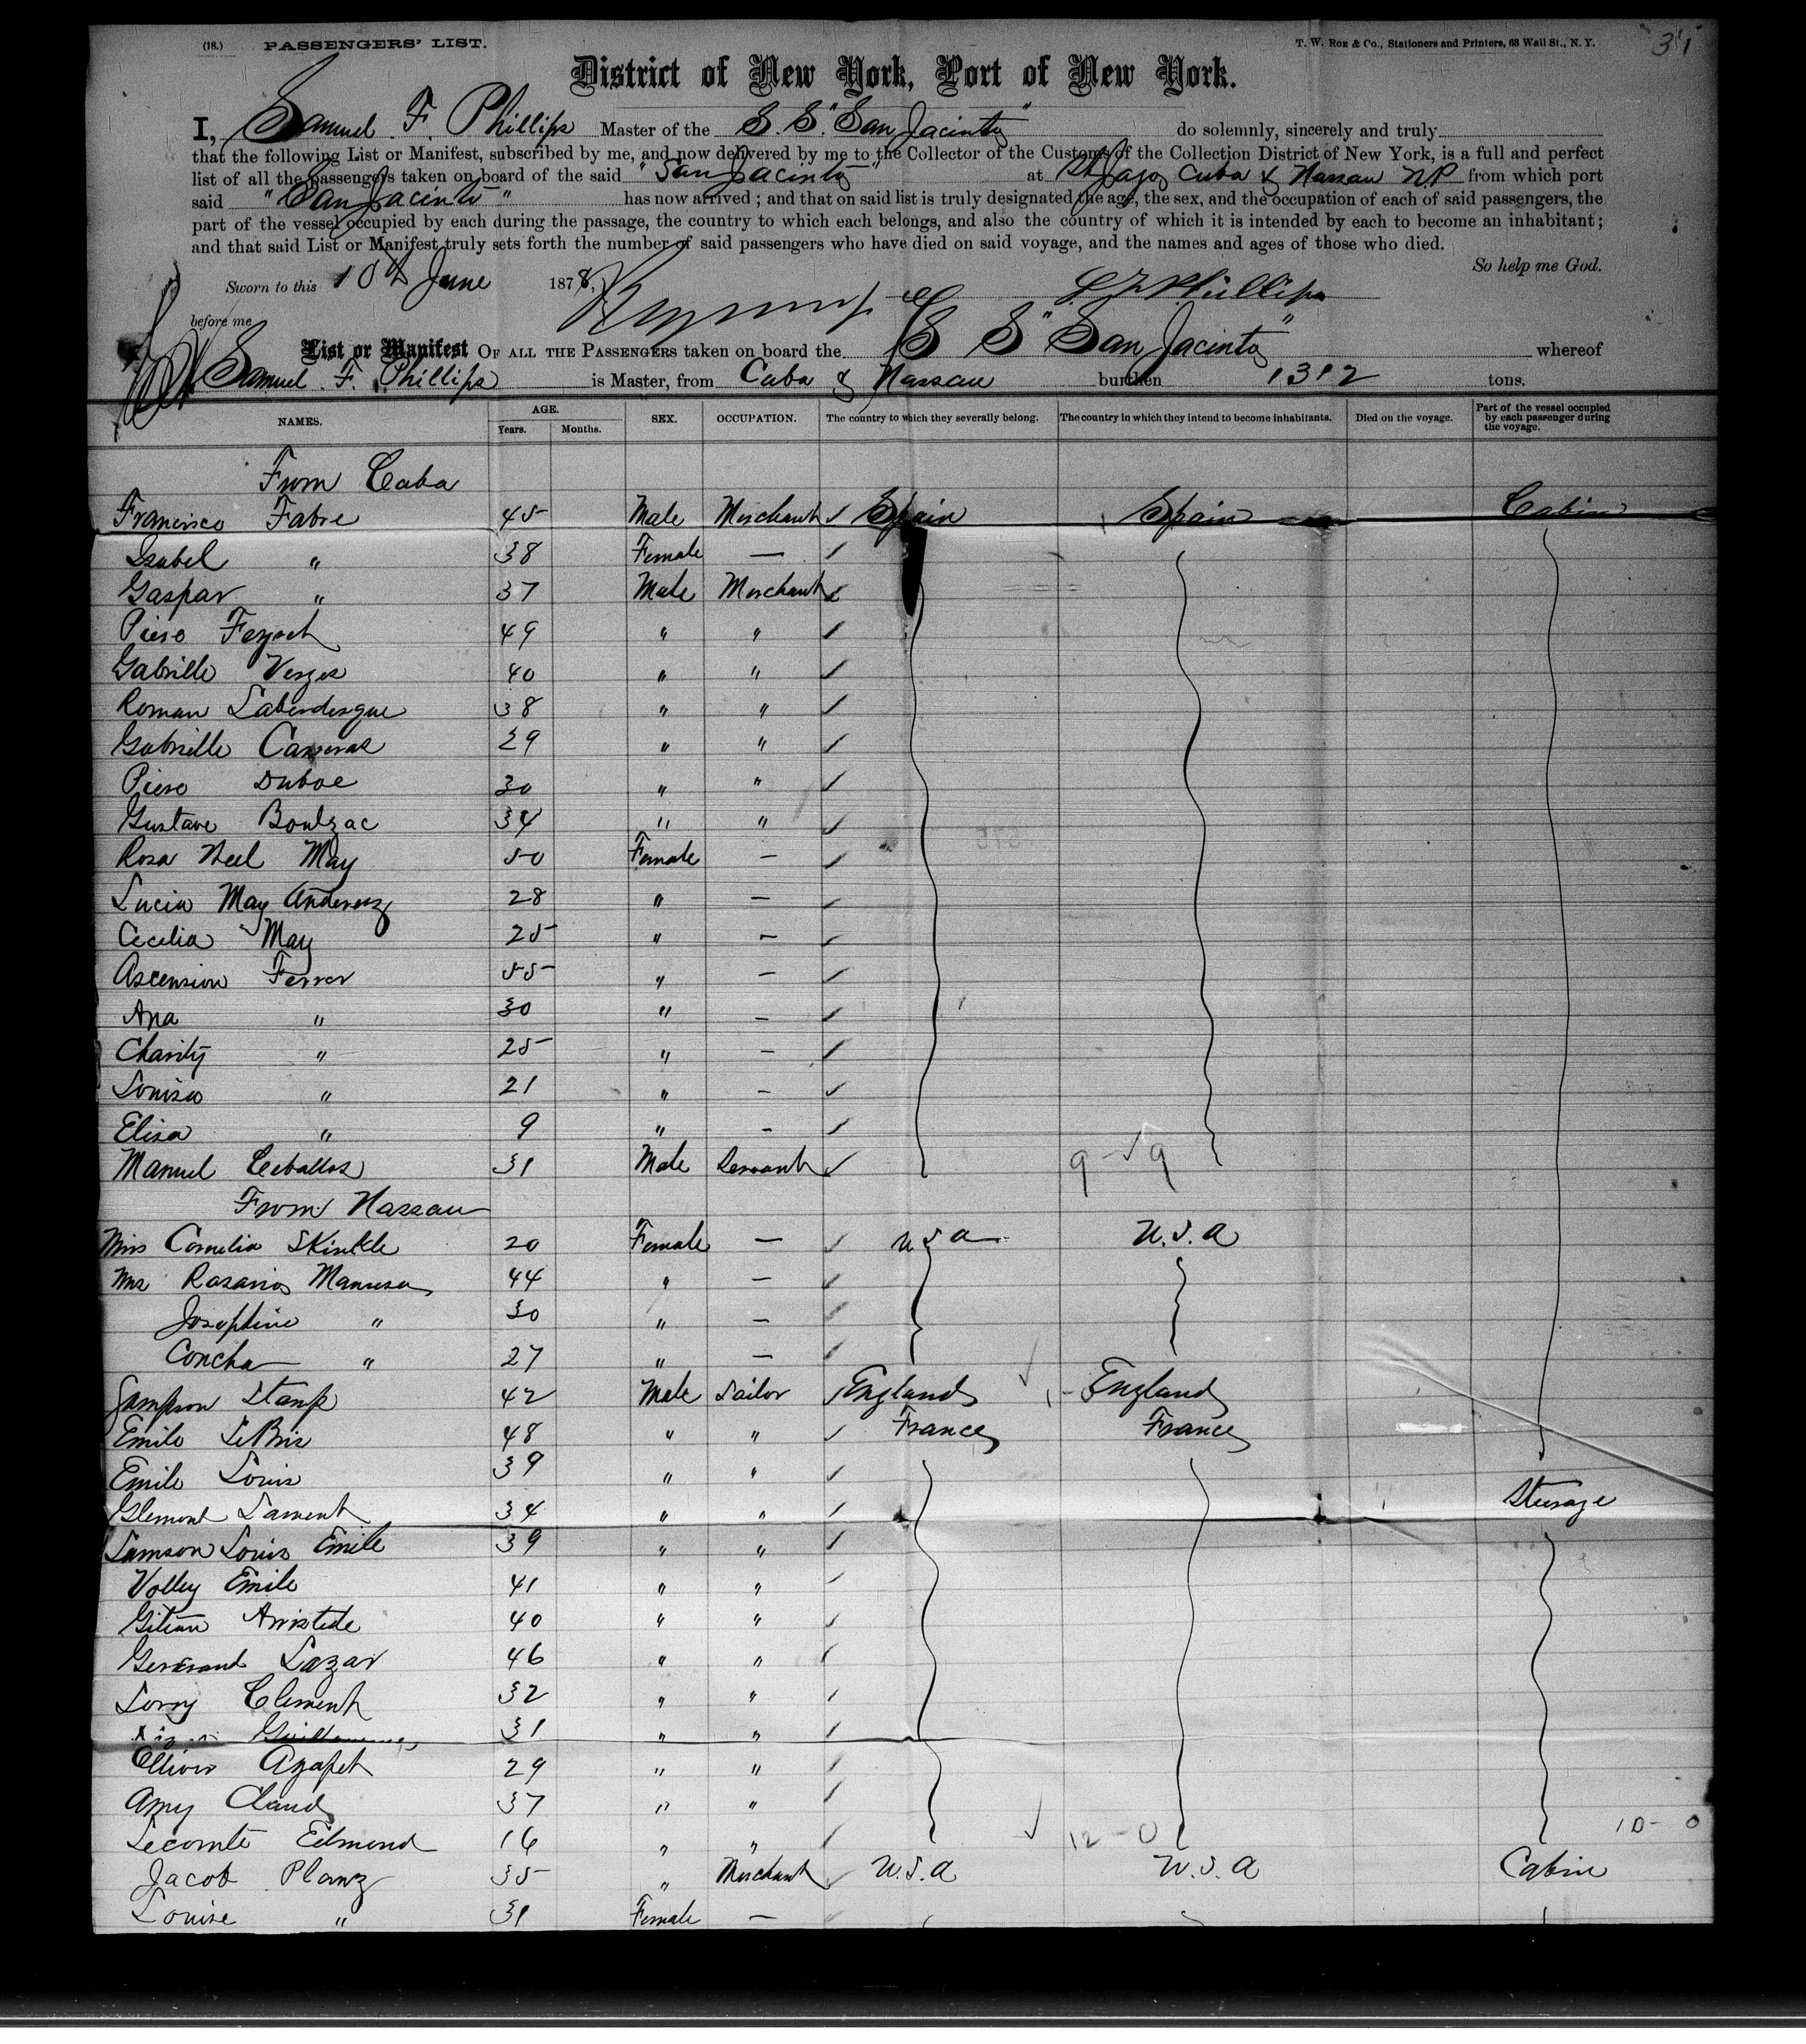 (18.) PASSENGERS' LIST. T. W. ROE & CO., Stationers and Printers, 63 Wall St., N. Y. 31
District of New York, Port of New York.
I, Samuel F. Phillips Master of the S. S. "San Jacinto" do solemnly, sincerely and truly
that the following List or Manifest, subscribed by me, and now delivered by me to the Collector of the Customs of the Collection District of New York, is a full and perfect
list of all the passengers taken on board of the said "San Jacinto" at St Jago Cuba & Nassau N.P from which port
said "San Jacinto" has now arrived; and that on said list is truly designated the age, the sex, and the occupation of each of said passengers, the
part of the vessel occupied by each during the passage, the country to which each belongs, and also the country of which it is intended by each to become an inhabitant;
and that said List or Manifest truly sets forth the number of said passengers who have died on said voyage, and the names and ages of those who died.
So help me God.
Sworn to this 10th June 1878, S F Phillips
before me
List or Manifest OF ALL THE PASSENGERS taken on board the S S "San Jacinto" whereof
Samuel F. Phillips is Master, from Cuba & Nassau burthen 1312 tons.
NAMES. AGE. Years. Months. SEX. OCCUPATION. The country to which they severally belong. The country in which they intend to become inhabitants. Died on the voyage. Part of the vessel occupied by each passenger during the voyage.
From Cuba
Francisco Fabre 45 Male Merchant Spain Spain Cabin
Isabel " 38 Female —
Gaspar " 37 Male Merchant
Piero 49 " "
Gabrille Verges 40 " "
Roman Laberdesque 38 " "
Gabrille Carreras 29 " "
Piero Duboe 30 " "
Gustave Boulzac 34 " "
Rosa Neel May 50 Female —
Lucia May 28 " —
Cecelia May 25 " —
Ascension Ferrer 55 " —
Ana " 30 " —
Charity " 25 " —
Louisa " 21 " —
Elisa " 9 " —
Manuel Ceballos 31 Male Servant 9 - 9
From Nassau
Miss Cornelia Skinkle 20 Female — U S A U. S. A
Mrs Rosario 44 " —
Josephine " 30 " —
Concha " 27 " —
Sampson Stamp 42 Male Sailor England England
Emile LeBris 48 " " France France
Emile Louis 39 " "
Glemont Lament 34 " " Steerage
Samson Louis Emile 39 " "
Volley Emile 41 " "
Aristide 40 " "
Lazar 46 " "
Lorry Clement 32 " "
Guillaume 31 " "
Azapet 29 " "
Amy Claud 37 " "
Lecomte Edmond 16 " " 12 - 0 10 - 0
Jacob Planz 35 " Merchant U. S. A U. S. A Cabin
Louise " 31 Female —